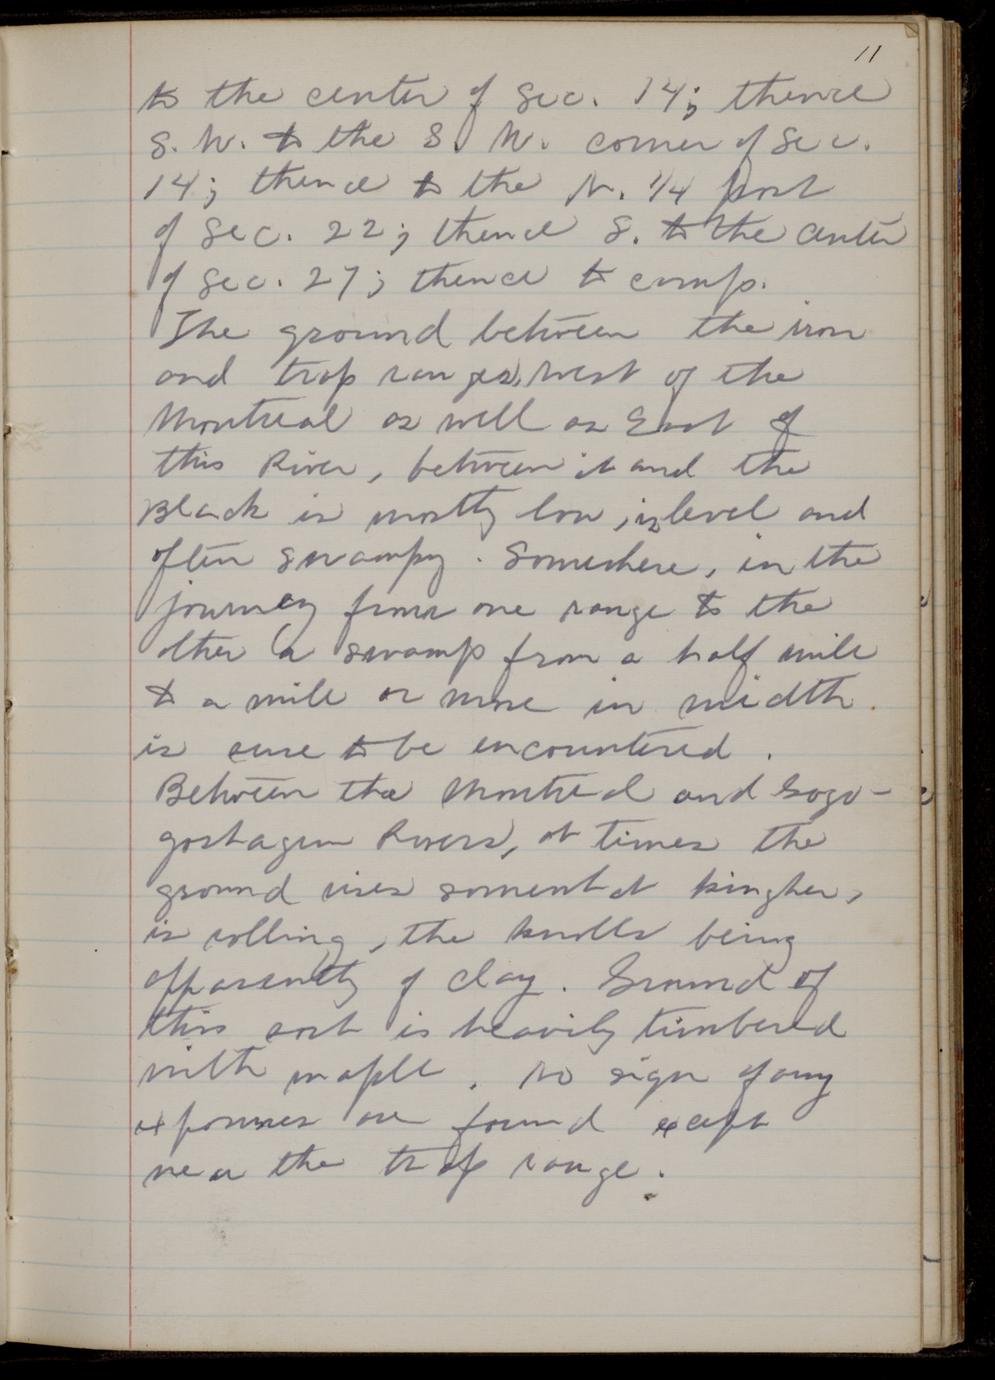 11
to the center of Sec. 14; thence
S.W. to the S.W. corner of Sec.
14; thence to the N. 1/4 post
of Sec. 22; thence S. to the center
of Sec. 27; thence to camp.
The ground between the iron
and trap ranges, west of the
Montreal as well as East of
this River, between it and the
Black is mostly low, is level and
often swampy. Somewhere, in the
journey from one range to the
other a swamp from a half mile
to a mile or more in width
is sure to be encountered.
Between the Montreal and Gogo-
goshagun Rivers, at times the
ground rises somewhat higher,
is rolling, the knolls being
apparently of clay. Ground of
this sort is heavily timbered
with maple. No sign of any
exposures are found except
near the trap range.